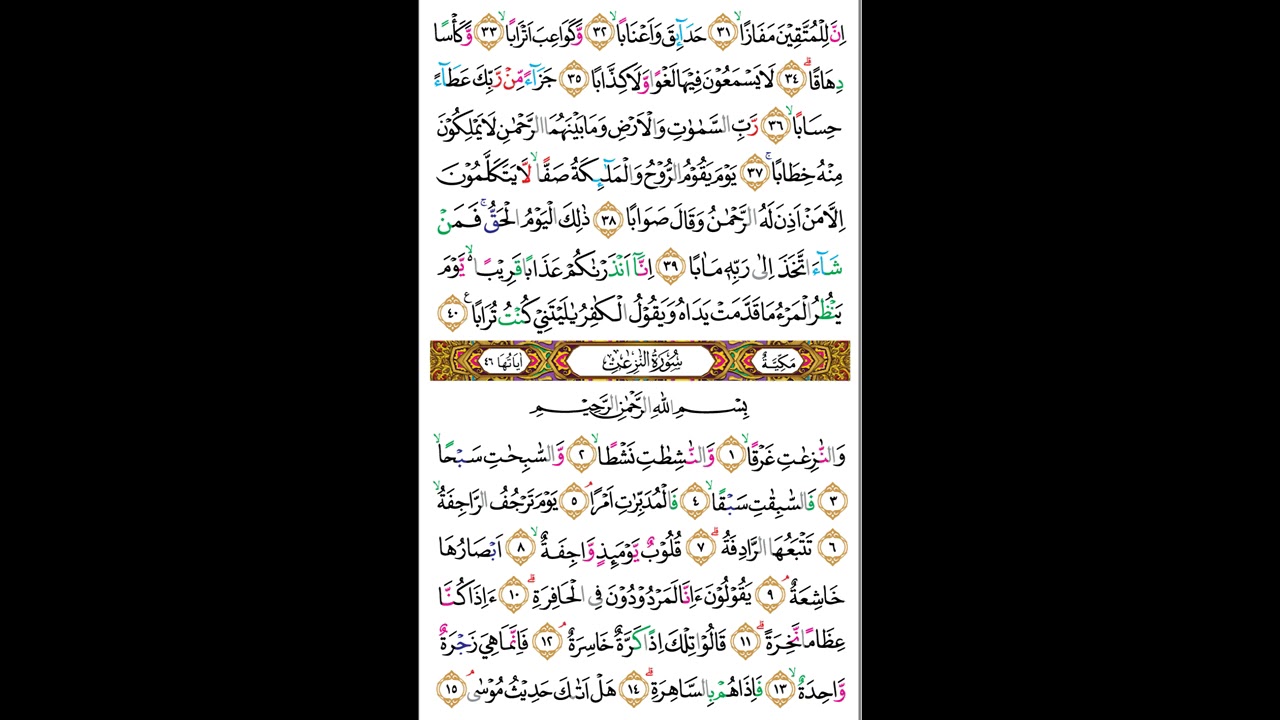 اِنَّ لِلْمُتَّقِيْنَ مَفَازًا ۙ ٣١ حَدَآئِقَ وَاَعْنَابًا ۙ ٣٢ وَّكَوَاعِبَ اَتْرَابًا ۙ ٣٣ وَّكَأْسًا
دِهَاقًا ۗ ٣٤ لَا يَسْمَعُوْنَ فِيْهَا لَغْوًا وَّلَا كِذَّابًا ٣٥ جَزَآءً مِّنْ رَّبِّكَ عَطَآءً
حِسَابًا ۙ ٣٦ رَّبِّ السَّمٰوٰتِ وَالْاَرْضِ وَمَا بَيْنَهُمَا الرَّحْمٰنِ لَا يَمْلِكُوْنَ
مِنْهُ خِطَابًا ۚ ٣٧ يَوْمَ يَقُوْمُ الرُّوْحُ وَالْمَلٰۤىِٕكَةُ صَفًّا ۙ لَّا يَتَكَلَّمُوْنَ
اِلَّا مَنْ اَذِنَ لَهُ الرَّحْمٰنُ وَقَالَ صَوَابًا ٣٨ ذٰلِكَ الْيَوْمُ الْحَقُّ ۚ فَمَنْ
شَآءَ اتَّخَذَ اِلٰى رَبِّهٖ مَاٰبًا ٣٩ اِنَّآ اَنْذَرْنٰكُمْ عَذَابًا قَرِيْبًا ەۙ يَّوْمَ
يَنْظُرُ الْمَرْءُ مَا قَدَّمَتْ يَدَاهُ وَيَقُوْلُ الْكٰفِرُ يٰلَيْتَنِيْ كُنْتُ تُرَابًا ࣖ ٤٠
مَكِّيَّةٌ سُوْرَةُ النّٰزِعٰتِ اٰيَاتُهَا ٤٦
بِسْمِ اللّٰهِ الرَّحْمٰنِ الرَّحِيْمِ
وَالنّٰزِعٰتِ غَرْقًا ۙ ١ وَّالنّٰشِطٰتِ نَشْطًا ۙ ٢ وَّالسّٰبِحٰتِ سَبْحًا ۙ
٣ فَالسّٰبِقٰتِ سَبْقًا ۙ ٤ فَالْمُدَبِّرٰتِ اَمْرًا ۘ ٥ يَوْمَ تَرْجُفُ الرَّاجِفَةُ ۙ
٦ تَتْبَعُهَا الرَّادِفَةُ ۗ ٧ قُلُوْبٌ يَّوْمَىِٕذٍ وَّاجِفَةٌ ۙ ٨ اَبْصَارُهَا
خَاشِعَةٌ ۘ ٩ يَقُوْلُوْنَ ءَاِنَّا لَمَرْدُوْدُوْنَ فِى الْحَافِرَةِ ۗ ١٠ ءَاِذَا كُنَّا
عِظَامًا نَّخِرَةً ۗ ١١ قَالُوْا تِلْكَ اِذًا كَرَّةٌ خَاسِرَةٌ ۘ ١٢ فَاِنَّمَا هِيَ زَجْرَةٌ
وَّاحِدَةٌ ۙ ١٣ فَاِذَا هُمْ بِالسَّاهِرَةِ ۗ ١٤ هَلْ اَتٰىكَ حَدِيْثُ مُوْسٰى ۘ ١٥